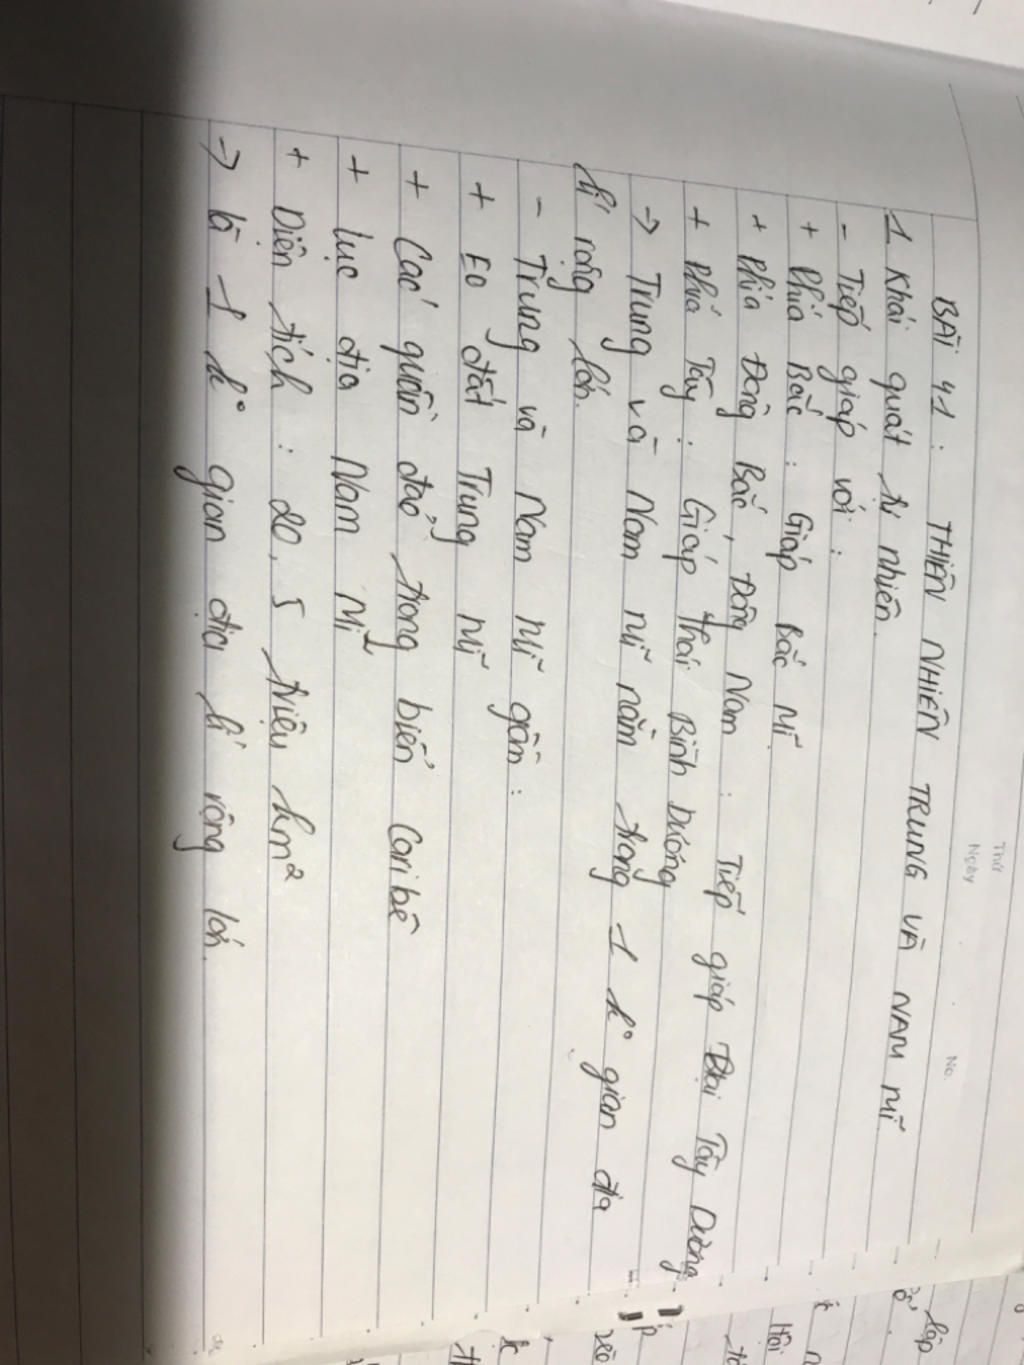 Thứ
Ngày
No.
BÀI 41 : THIÊN NHIÊN TRUNG VÀ NAM MĨ
1 Khái quát tự nhiên.
- Tiếp giáp với :
+ Phía Bắc : Giáp Bắc Mĩ
+ Phía Đông Bắc, Đông Nam : Tiếp giáp Đại Tây Dương
+ Phía Tây : Giáp Thái Bình Dương
→ Trung và Nam Mĩ nằm trong 1 ko gian địa
lí rộng lớn.
- Trung và Nam Mĩ gồm :
+ Eo đất Trung Mĩ
+ Các quần đảo trong biển Caribê
+ lục địa Nam Mĩ
+ Diện tích : 20,5 triệu km²
→ là 1 ko gian địa lí rộng lớn.